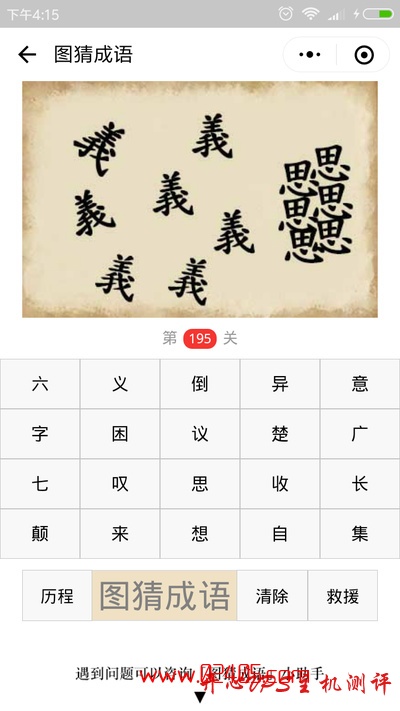 下午4:15
图猜成语
義 義
義 思 思
義 義 思 思
義 義 思 思
第 195 关
六 义 倒 异 意
字 困 议 楚 广
七 叹 思 收 长
颠 来 想 自 集
历程 图猜成语 清除 救援
遇到问题可以咨询「图猜成语」小助手